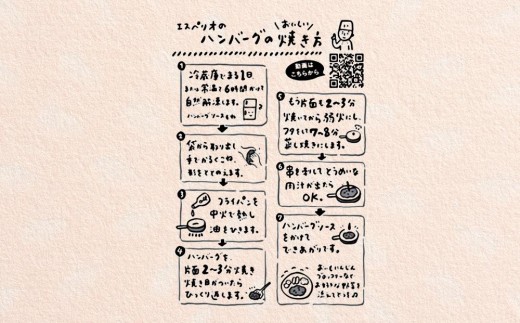 エスペリオの
おいしい
ハンバーグの焼き方
動画は
こちらから
1
冷蔵庫でまる1日、
または常温で6時間かけて
自然解凍します。
ハンバーグソースもね
2
袋から取り出し
手でかるくこね、
形をととのえます。
3
フライパンを
中火で熱し
油をひきます。
4
ハンバーグを、
片面2〜3分焼き
焼き目がついたら
ひっくり返します。
5
もう片面も2〜3分
焼いてから弱火にし、
フタをして7〜8分
蒸し焼きにします。
6
串を刺してとうめいな
肉汁が出たら
OK。
7
ハンバーグソース
をかけて
できあがりです。
おいもにんじん
ブロッコリーなど
お好きな野菜を